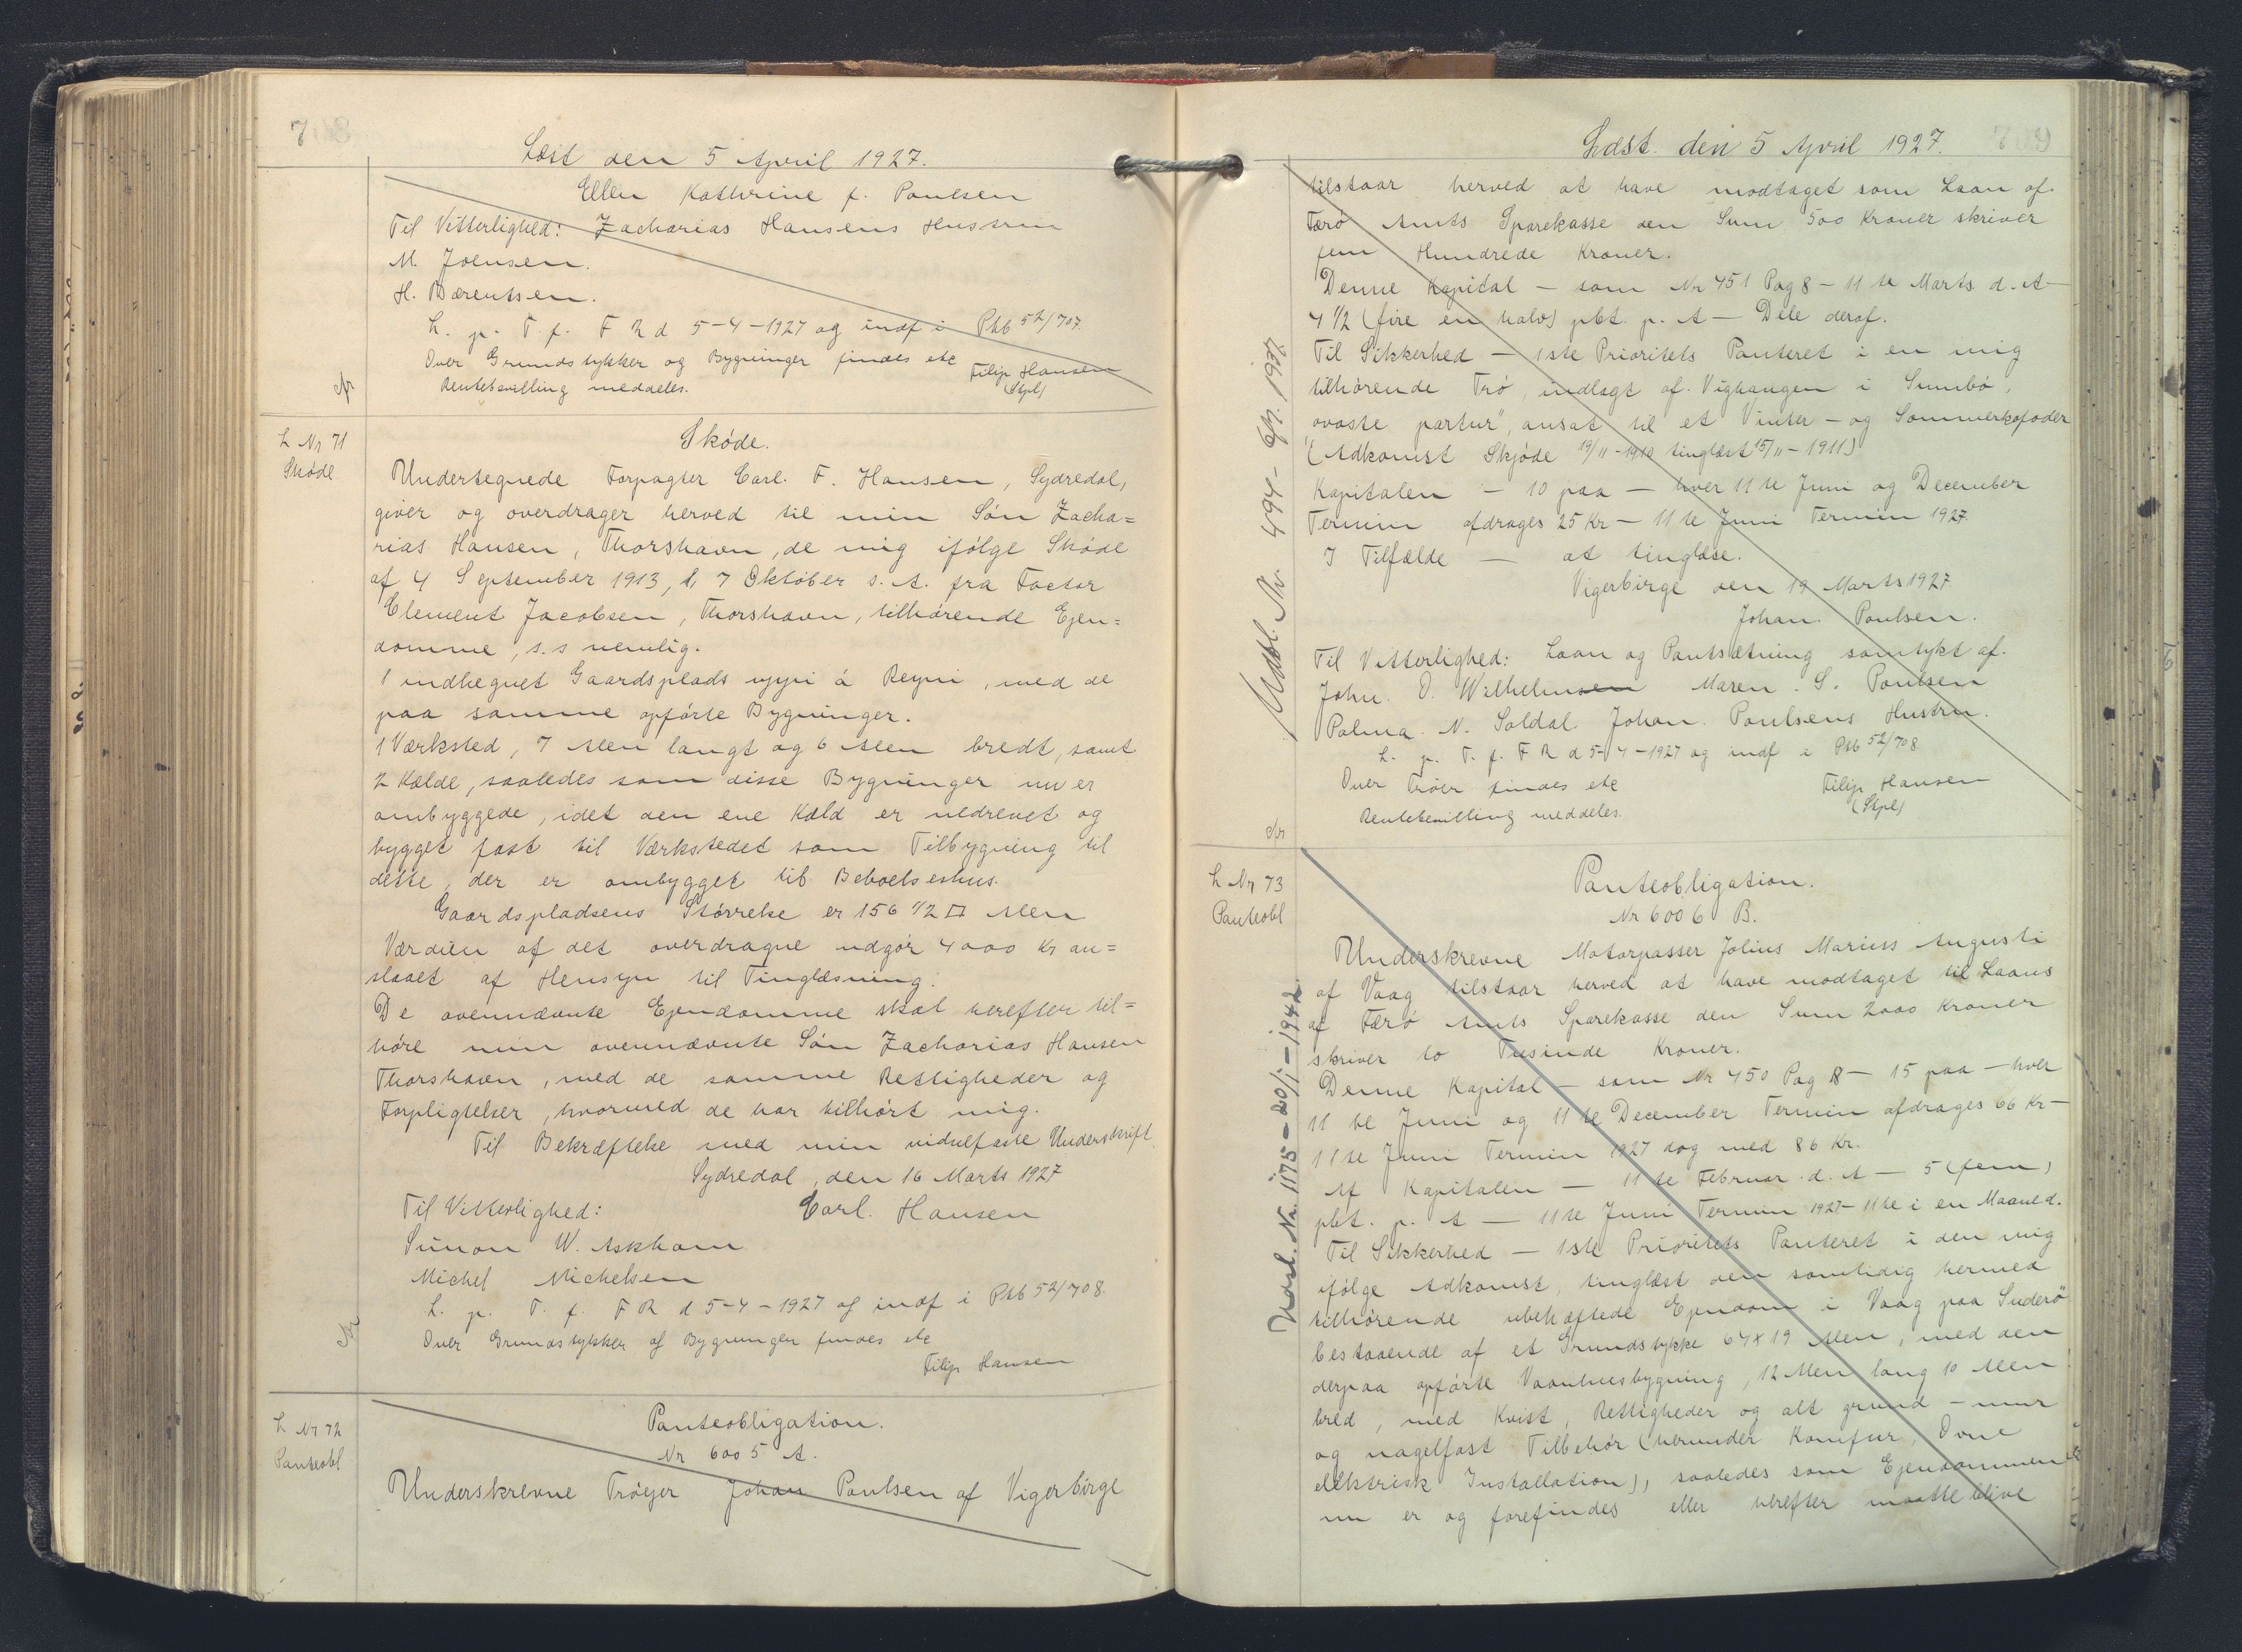 7
Læst den 5 April 1927.
Ellen Kathrine f. Poulsen
Til Vitterlighed: Zacharias Hansens Hustru
M. Joensen.
H. Bærentsen.
L. p. T. f. F R d 5-4-1927 og indf i Pkb 52/707.
Over Grundstykker og Bygninger findes etc Filip Hansen
Rentebevilling meddeles. (Stpl)
L Nr 71
Skøde
Skøde.
Undertegnede Forpagter Carl. F. Hansen, Sydredal,
giver og overdrager herved til min Søn Zacha=
rias Hansen, Thorshavn, de mig ifølge Skøde
af 4 September 1913, l. 7 Oktober s. A. fra Factor
Clement Jacobsen, Thorshavn, tilhørende Ejen=
domme, s.s nemlig.
1 indhegnet Gaardsplads uppi á Reyni, med de
paa samme opførte Bygninger.
1 Værksted, 7 Alen langt og 6 Alen bredt, samt
2 Kælde, saaledes som disse Bygninger nu er
ombyggede, idet den ene Kæld er nedrevet og
bygget fast til Værkstedet som Tilbygning til
dette, der er ombygget til Beboelseshus.
Gaardspladsens Størrelse er 156 1/2 □ Alen
Værdien af det overdragne udgør 4000 Kr an=
slaaet af Hensyn til Tinglæsning.
De ovennævnte Ejendomme skal herefter til=
høre min ovennævnte Søn Zacharias Hansen
Thorshavn, med de samme Rettigheder og
Forpligtelser, hvormed de har tilhørt mig.
Til Bekræftelse med min vidnefaste Underskrift
Sydredal, den 16 Marts 1927
Til Vitterlighed: Carl. Hansen
Simon W. Askham
Michel Michelsen
L. p. T. f. F R d 5-4-1927 og indf i Pkb 52/708.
Over Grundstykker og Bygninger findes etc
Filip Hansen
L Nr 72
Panteobl
Panteobligation.
Nr 6005 A.
Underskrevne Trøjer Johan Poulsen af Vigerbirge
709
Læst. den 5 April 1927.
tilstaar herved at have modtaget som Laan af
Færø Amts Sparekasse den Sum 500 Kroner skriver
fem Hundrede Kroner.
Denne Kapital – som Nr 451 Pag 8 – 11 te Marts d. A –
4 1/2 (fire en halv) pCt. p. A – Dele deraf.
Til Sikkerhed – 1ste Prioritets Panteret i en mig
tilhørende Trø, indlagt af Vighaugen i Sumbø,
ovaste partur", ansat til et Vinter – og Sommerkofoder
(Adkomst Skjøde 19/11-1910 tinglæst 15/11-1911)
Kapitalen – 10 paa – hver 11 te Juni og December
Termin afdrages 25 Kr – 11 te Juni Termin 1927.
I Tilfælde – at tinglæse.
Vigerbirge den 19 Marts 1927
Johan Poulsen.
Til Vitterlighed: Laan og Pantsætning samtykt af.
John. O. Wilhelmsen Maren. S. Poulsen
Palma. N. Soldal. Johan. Poulsens Hustru.
L. p. T. f. F R d 5-4-1927 og indf i Pkb 52/708
Over Trøer findes etc Filip Hansen
Rentebevilling meddeles. (Stpl)
Udsl. Nr. 494 - 6/9. 1937.
L Nr 73
Panteobl
Panteobligation.
Nr 6006 B.
Underskrevne Motorpasser Jolius Marius Augusti
af Vaag tilstaar herved at have modtaget til Laans
af Færø Amts Sparekasse den Sum 2000 Kroner
skriver to Tusinde Kroner.
Denne Kapital – som Nr 450 Pag 8 – 15 paa – hver
11 te Juni og 11 te December Termin afdrages 66 Kr –
11 te Juni Termin 1927 dog med 86 Kr.
Af Kapitalen – 11 te Februar d. A – 5 (fem)
pCt. p. A – 11 te Juni Termin 1927 – 11te i en Maaned.
Til Sikkerhed – 1ste Prioritets Panteret i den mig
ifølge Adkomst, tinglæst den samtidig hermed
tilhørende ubehæftede Ejendom i Vaag paa Suderø
bestaaende af et Grundstykke 64x19 Alen, med den
derpaa opførte Vaanhusbygning, 12 Alen lang 10 Alen
bred, med Kvist, Rettigheder og alt grund – mur
og nagelfast Tilbehør (herunder Komfur, Ovne
elektrisk Installation), saaledes som Ejendommen
nu er og forefindes eller herefter maatte blive
Udsl. Nr. 1175 - 20/1 - 1942.